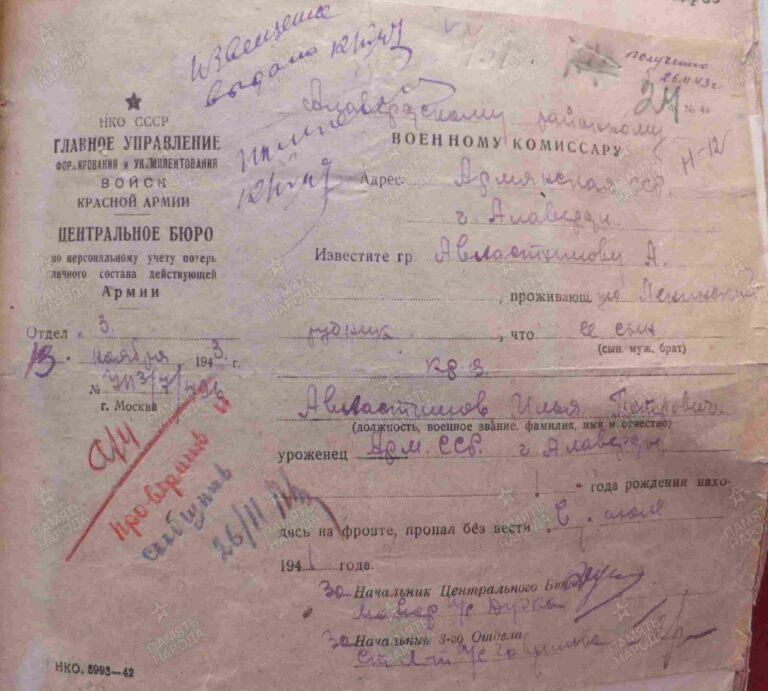 Извещение
выдано
получено
26.11.43г
24 № 4
НКО СССР
ГЛАВНОЕ УПРАВЛЕНИЕ
ФОРМИРОВАНИЯ И УКОМПЛЕКТОВАНИЯ
ВОЙСК
КРАСНОЙ АРМИИ
ЦЕНТРАЛЬНОЕ БЮРО
по персональному учету потерь
личного состава действующей
Армии
Отдел „ 3.
13. ноября 1943 г.
№
г. Москва
Алавердскому районному
ВОЕННОМУ КОМИССАРУ
Н-12
Адрес: Армянская ССР.
г. Алаверди
Известите гр. Авластимову А.
, проживающ. Ленинский
рудник , что ее сын
(сын, муж, брат)
кр-з
Авластимов Илья Петрович
(должность, военное звание, фамилия, имя и отчество)
уроженец Арм. ССР. г. Алаверды
“ года рождения нахо-
дясь на фронте, пропал без вести „ июля
1941 года.
За Начальник Центрального Бюро
Майор
За Начальник 3-го Отдела
26/11
НКО. 5993—42
ПАМЯТЬ
НАРОДА